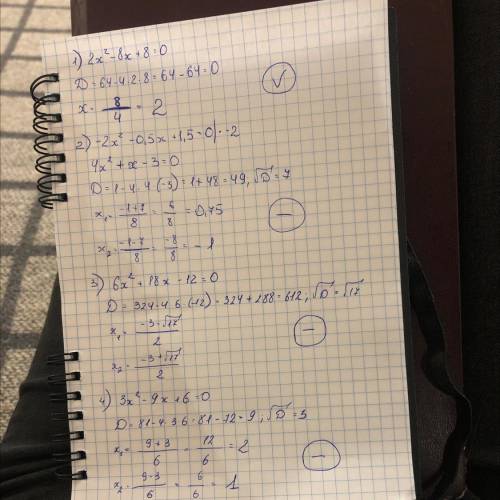 1) 2x² - 8x + 8 = 0
D = 64 - 4·2·8 = 64 - 64 = 0
x = 8/4 = 2
✓
2) -2x² - 0,5x + 1,5 = 0 | · -2
4x² + x - 3 = 0
D = 1 - 4·4·(-3) = 1 + 48 = 49, √D = 7
x₁ = (-1+7)/8 = 6/8 = 0,75
x₂ = (-1-7)/8 = -8/8 = -1
−
3) 6x² + 18x - 12 = 0
D = 324 - 4·6·(-12) = 324 + 288 = 612, √D = √17
x₁ = (-3-√17)/2
−
x₂ = (-3+√17)/2
4) 3x² - 9x + 6 = 0
D = 81 - 4·3·6 = 81 - 72 = 9, √D = 3
x₁ = (9+3)/6 = 12/6 = 2
−
x₂ = (9-3)/6 = 6/6 = 1